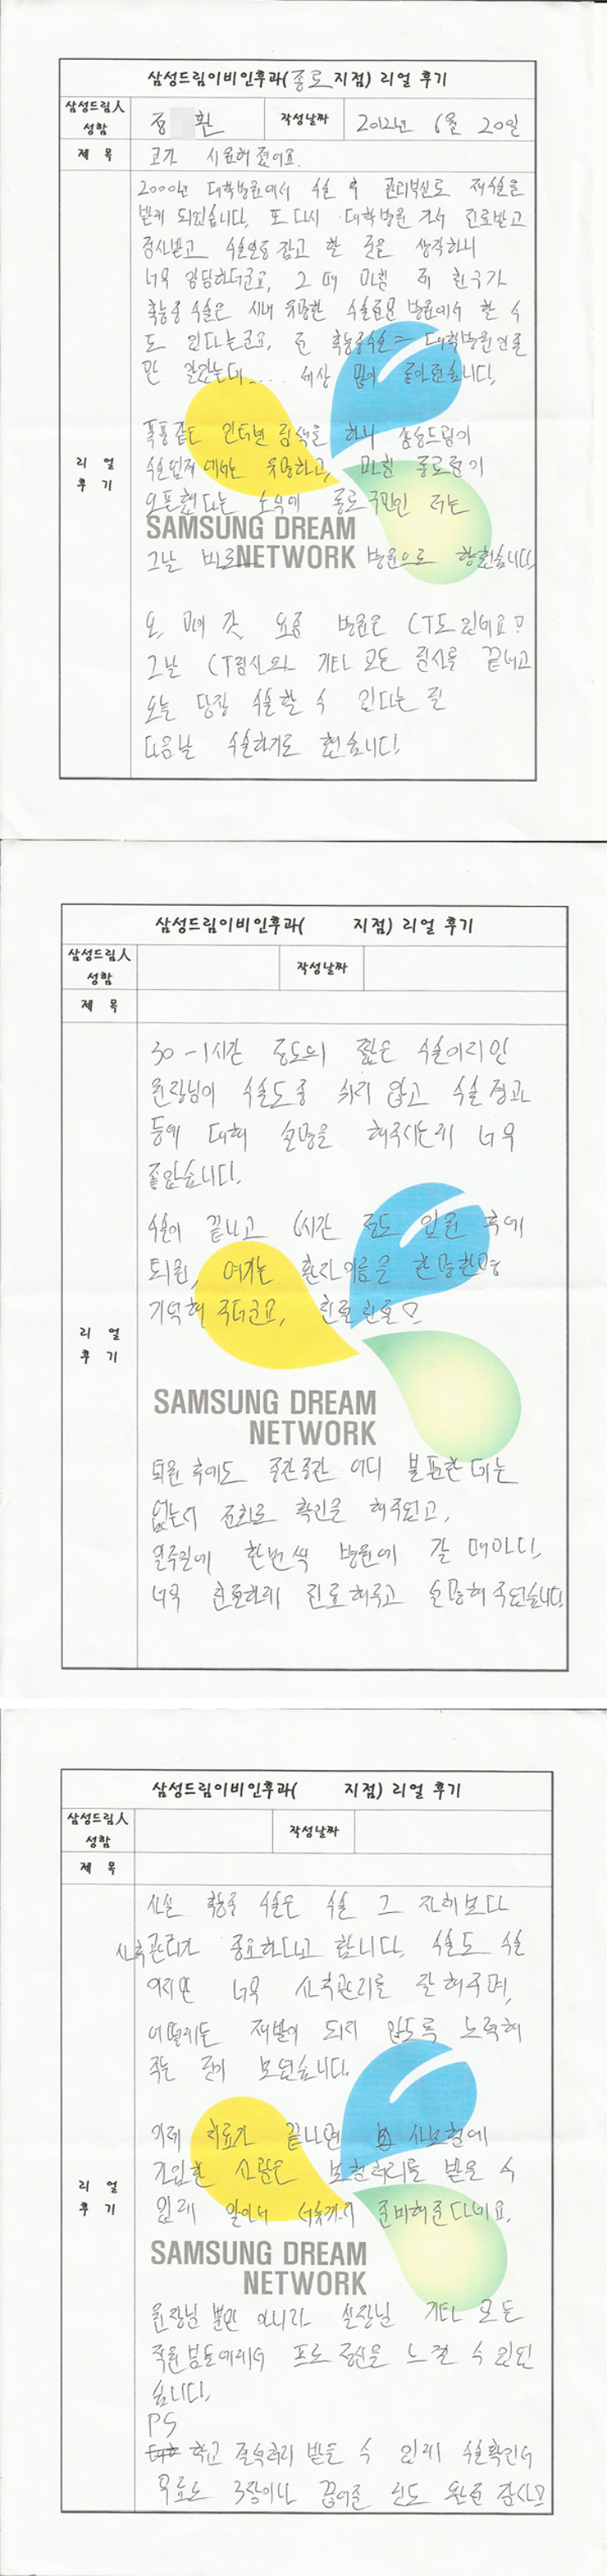 삼성드림이비인후과(종로 지점) 리얼 후기
삼성드림人 성함 정 환 작성날짜 2012년 6월 20일
제 목 코가 시원해졌어요.
리 얼 후 기
2000년 대학병원에서 수술 후 관리부실로 재수술을
받게 되었습니다. 또 다시 대학병원 가서 진료받고
검사받고 수술일정 잡고 할 것을 생각하니
너무 갑갑하더군요, 그 때 마침 제 친구가
축농증 수술은 시내 유명한 수술전문 병원에서 할 수
도 있다는군요, 전 축농증수술 = 대학병원인줄
만 알았는데.... 세상 많이 좋아졌습니다.
폭풍같은 인터넷 검색을 하니 삼성드림이
수술업계에서는 유명하고, 마침 종로점이
오픈했다는 소식에 종로구민인 저는
그날 바로 병원으로 향했습니다.
SAMSUNG DREAM
NETWORK
오, 마이 갓, 요즘 병원은 CT도 있네요?
그날 CT검사와 기타 모든 검사를 끝내고
오늘 당장 수술할 수 있다는 걸
다음날 수술하기로 했습니다!
삼성드림이비인후과( 지점) 리얼 후기
삼성드림人 성함 작성날짜
제 목
리 얼 후 기
30-1시간 정도의 짧은 수술이지만
원장님이 수술도중 쉬지 않고 수술 경과
등에 대해 설명을 해주시는게 너무
좋았습니다.
수술이 끝나고 6시간 정도 입원 후에
퇴원, 여기는 환자이름을 한명한명
기억해 주더군요,
SAMSUNG DREAM
NETWORK
퇴원 후에도 중간중간 어디 불편한 데는
없는지 전화로 확인을 해주었고,
일주일에 한번씩 병원에 갈 때마다,
너무 친절하게 진료해주고 설명해 주었습니다.
삼성드림이비인후과( 지점) 리얼 후기
삼성드림人 성함 작성날짜
제 목
리 얼 후 기
사실 축농증 수술은 수술 그 자체보다
사후관리가 중요하다고 합니다. 수술도 수술
이지만 너무 사후관리를 잘 해주며,
어떻게든 재발이 되지 않도록 노력해
주는 점이 보였습니다.
이제 치료가 끝나면 사보험에
가입한 사람은 보험처리를 받을 수
있게 알아서 서류까지 준비해준다네요.
SAMSUNG DREAM
NETWORK
원장님 뿐만 아니라 실장님 기타 모든
직원분들에게서 프로 정신을 느낄 수 있었
습니다.
PS
학교 결석처리 받을 수 있게 수술확인서
무료로 3장이나 끊어준 것도 완전 감사?